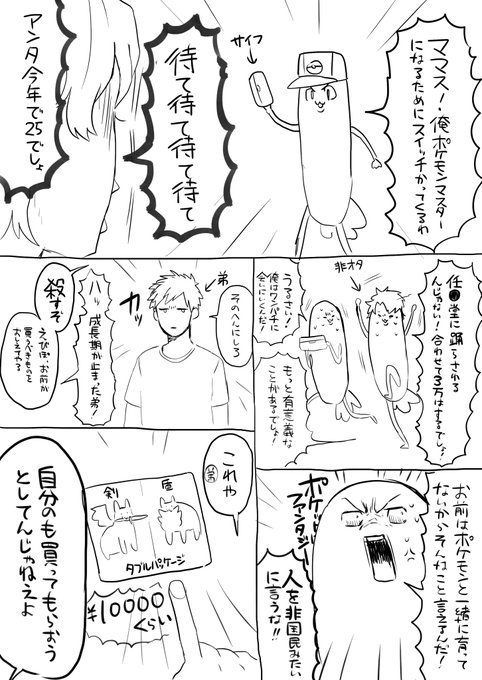 ママス!俺ポケモンマスター
になるためにスイッチかってくるわ
サイフ
待て待て待て待て
アンタ今年で
25でしょ
任●堂に踊らされる
んじゃない!合わせて3万はするでしょ!
非オタ
うるさい!
俺はワンパチに
会いにいくんだ!
もっと有意義な
ことがあるでしょ!
弟
そのへんにしろ
カッ
ハッ
成長期が止まった弟!
殺すぞ
えびぽ、お前が
買うべきものを
おしえてやる
お前はポケモンと一緒に育って
ないからそんなこと言えるんだ!
ポケット
ファンタジー
人を非国民みたい
に言うな!!
これや
弟
剣
盾
ダブルパッケージ
¥10000
くらい
自分のも買ってもらおう
としてんじゃねえよ